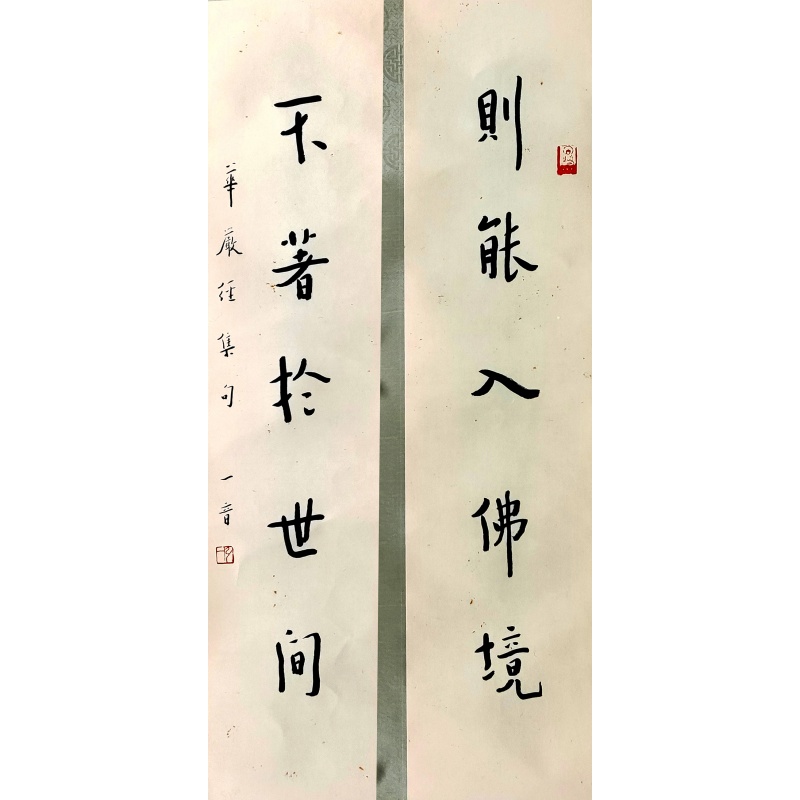 則能入佛境
不著於世间
華嚴經集句 一音